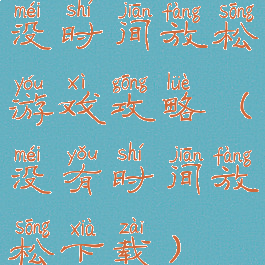 méi shí jiān fàng sōng
没时间放松
yóu xì gōng lüè
游戏攻略（
méi yǒu shí jiān fàng
没有时间放
sōng xià zài
松下载）